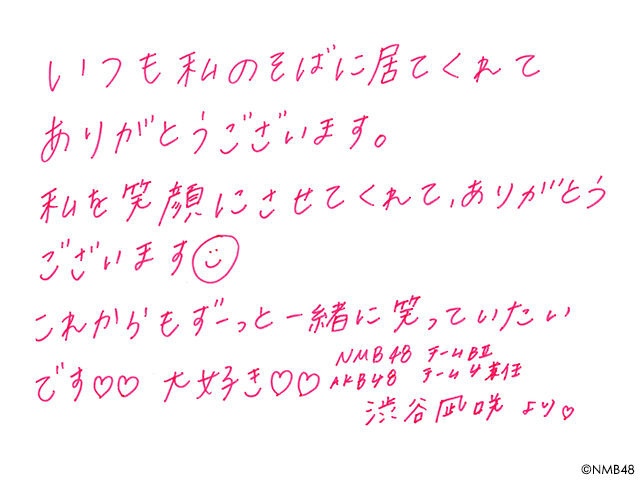 いつも私のそばに居てくれて
ありがとうございます。
私を笑顔にさせてくれて、ありがとう
ございます☺
これからもずーっと一緒に笑っていたい
です♡♡ 大好き♡♡
NMB48 チームBⅡ
AKB48 チーム4兼任
渋谷凪咲 より♡
©NMB48